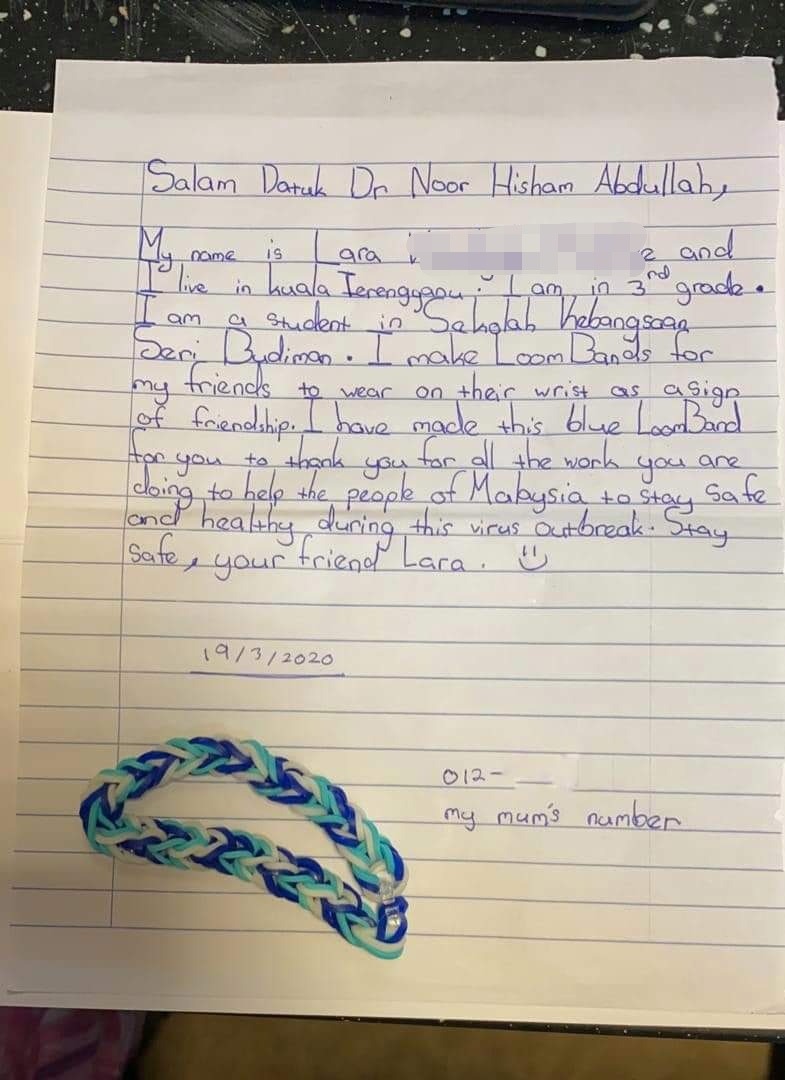 Salam Datuk Dr Noor Hisham Abdullah,
My name is Lara and
I live in kuala Terengganu. I am in 3rd grade.
I am a student in Sekolah Kebangsaan
Seri Budiman. I make Loom Bands for
my friends to wear on their wrist as a sign
of friendship. I have made this blue Loom Band
for you to thank you for all the work you are
doing to help the people of Malaysia to stay safe
and healthy during this virus outbreak. Stay
safe, your friend Lara.
19/3/2020
012-
my mum's number